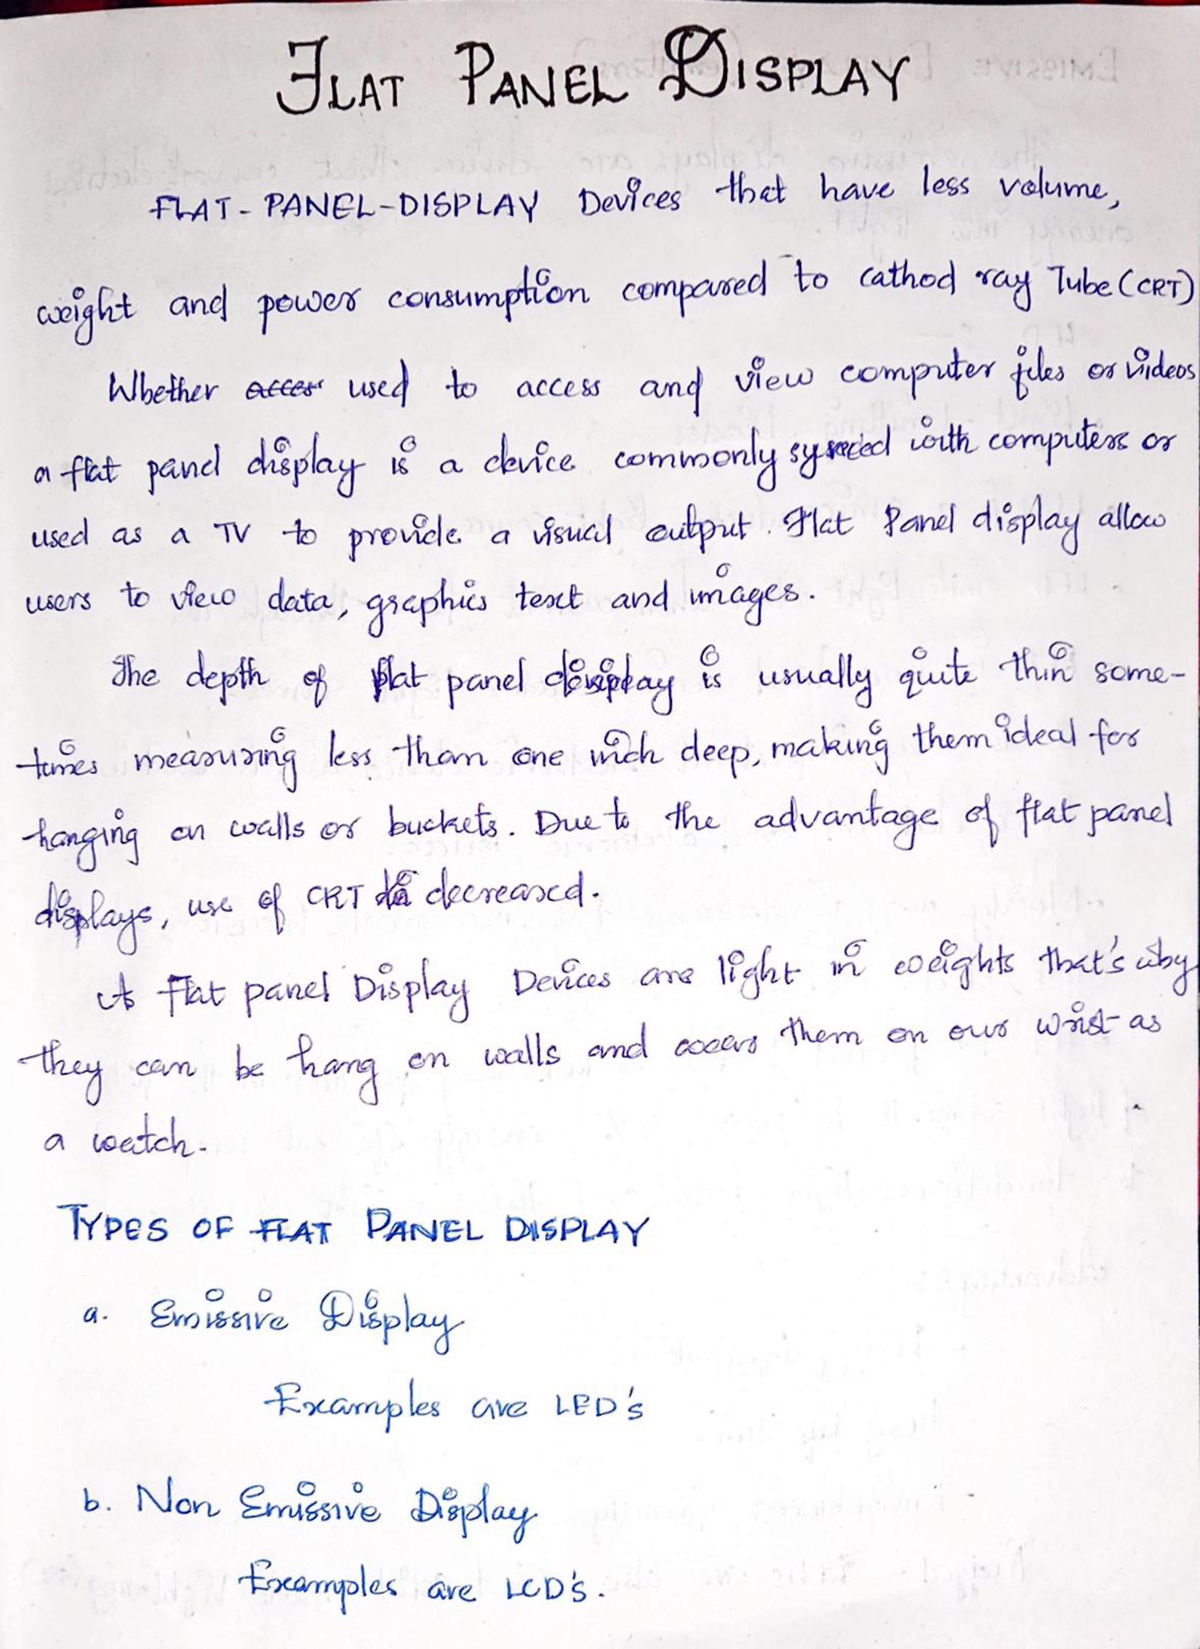 FLAT PANEL DISPLAY
FLAT-PANEL-DISPLAY Devices that have less volume,
weight and power consumption compared to cathod ray Tube (CRT)
Whether used to access and view computer files or videos
a flat panel display is a device commonly synced with computers or
used as a TV to provide a visual output. Flat Panel display allow
users to view data, graphics text and images.
The depth of flat panel display is usually quite thin some-
times measuring less than one inch deep, making them ideal for
hanging on walls or buckets. Due to the advantage of flat panel
displays, use of CRT decreased.
As Flat panel Display Devices are light in weights that's why
they can be hang on walls and wear them on our wrist as
a watch.
TYPES OF FLAT PANEL DISPLAY
a. Emissive Display
Examples are LED's
b. Non Emissive Display
Examples are LCD's.